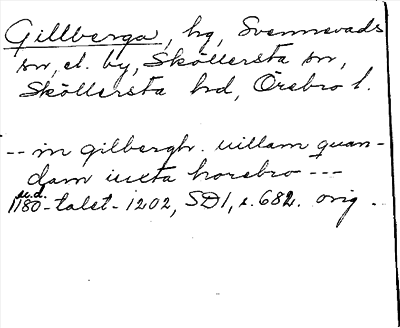 Gillberga, hg, Svennevads
sn, el. by, Sköllersta sn,
Sköllersta hd, Örebro l.
-- in gilbergh. uillam quan-
dam iuxta horebro ---
u.d.
1180-talet - 1202, SD1, s. 682. orig.